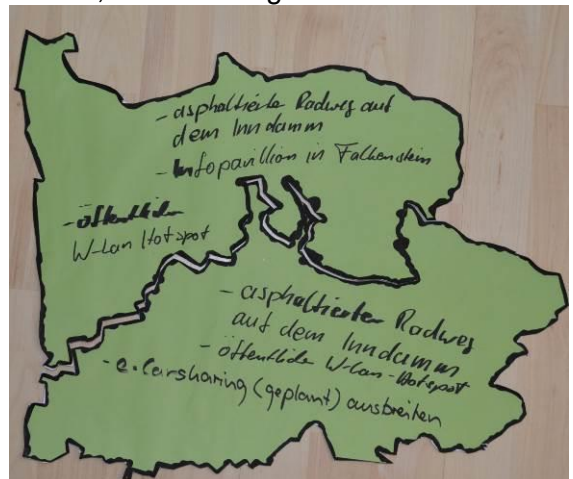 - asphaltierte Radweg auf
dem Inndamm
- Infopavillion in Falkenstein
- öffentliche
W-Lan Hotspot
- asphaltierten Radweg
auf dem Inndamm
- öffentliche W-Lan-Hotspot
- e.Carsharing (geplant) ausbreiten